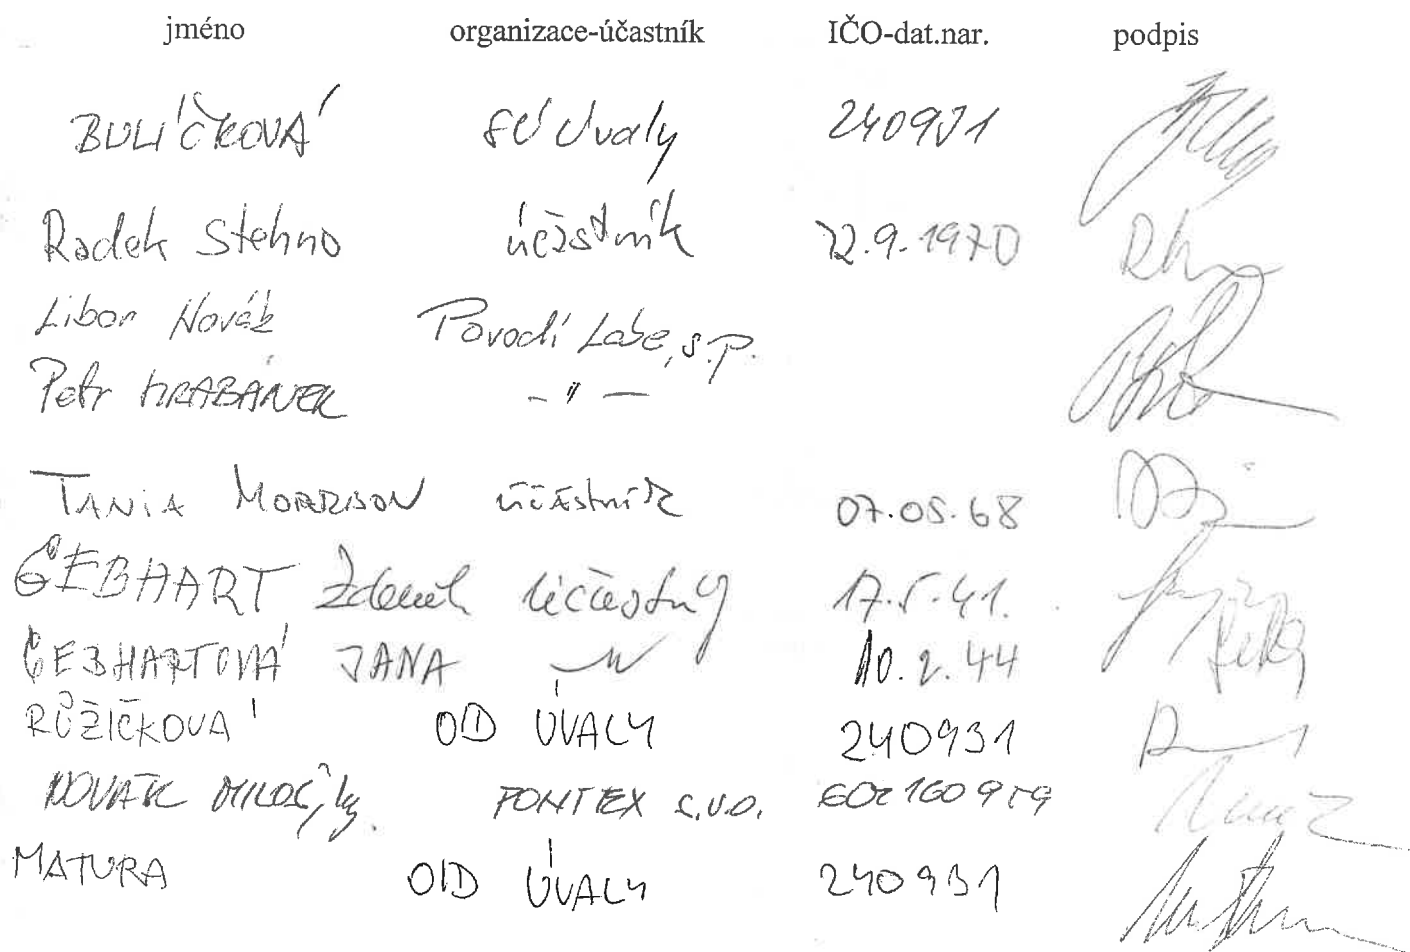 jméno organizace-účastník IČO-dat.nar. podpis
BULÍČKOVÁ SÚ Úvaly 240931
Radek Stehno účastník 22.9.1970
Libor Novák Povodí Labe, s.p.
Petr HRABÁNEK - " -
TANIA MORRISON účastník 07.05.68
GEBHART Zdeněk účastný 17.5.41.
GEBHARTOVÁ JANA 10.2.44
RŮŽIČKOVÁ OD ÚVALY 240931
NOVÁK MILOŠ, Ing. PONTEX s.r.o.
MATURA OID ÚVALY 240931